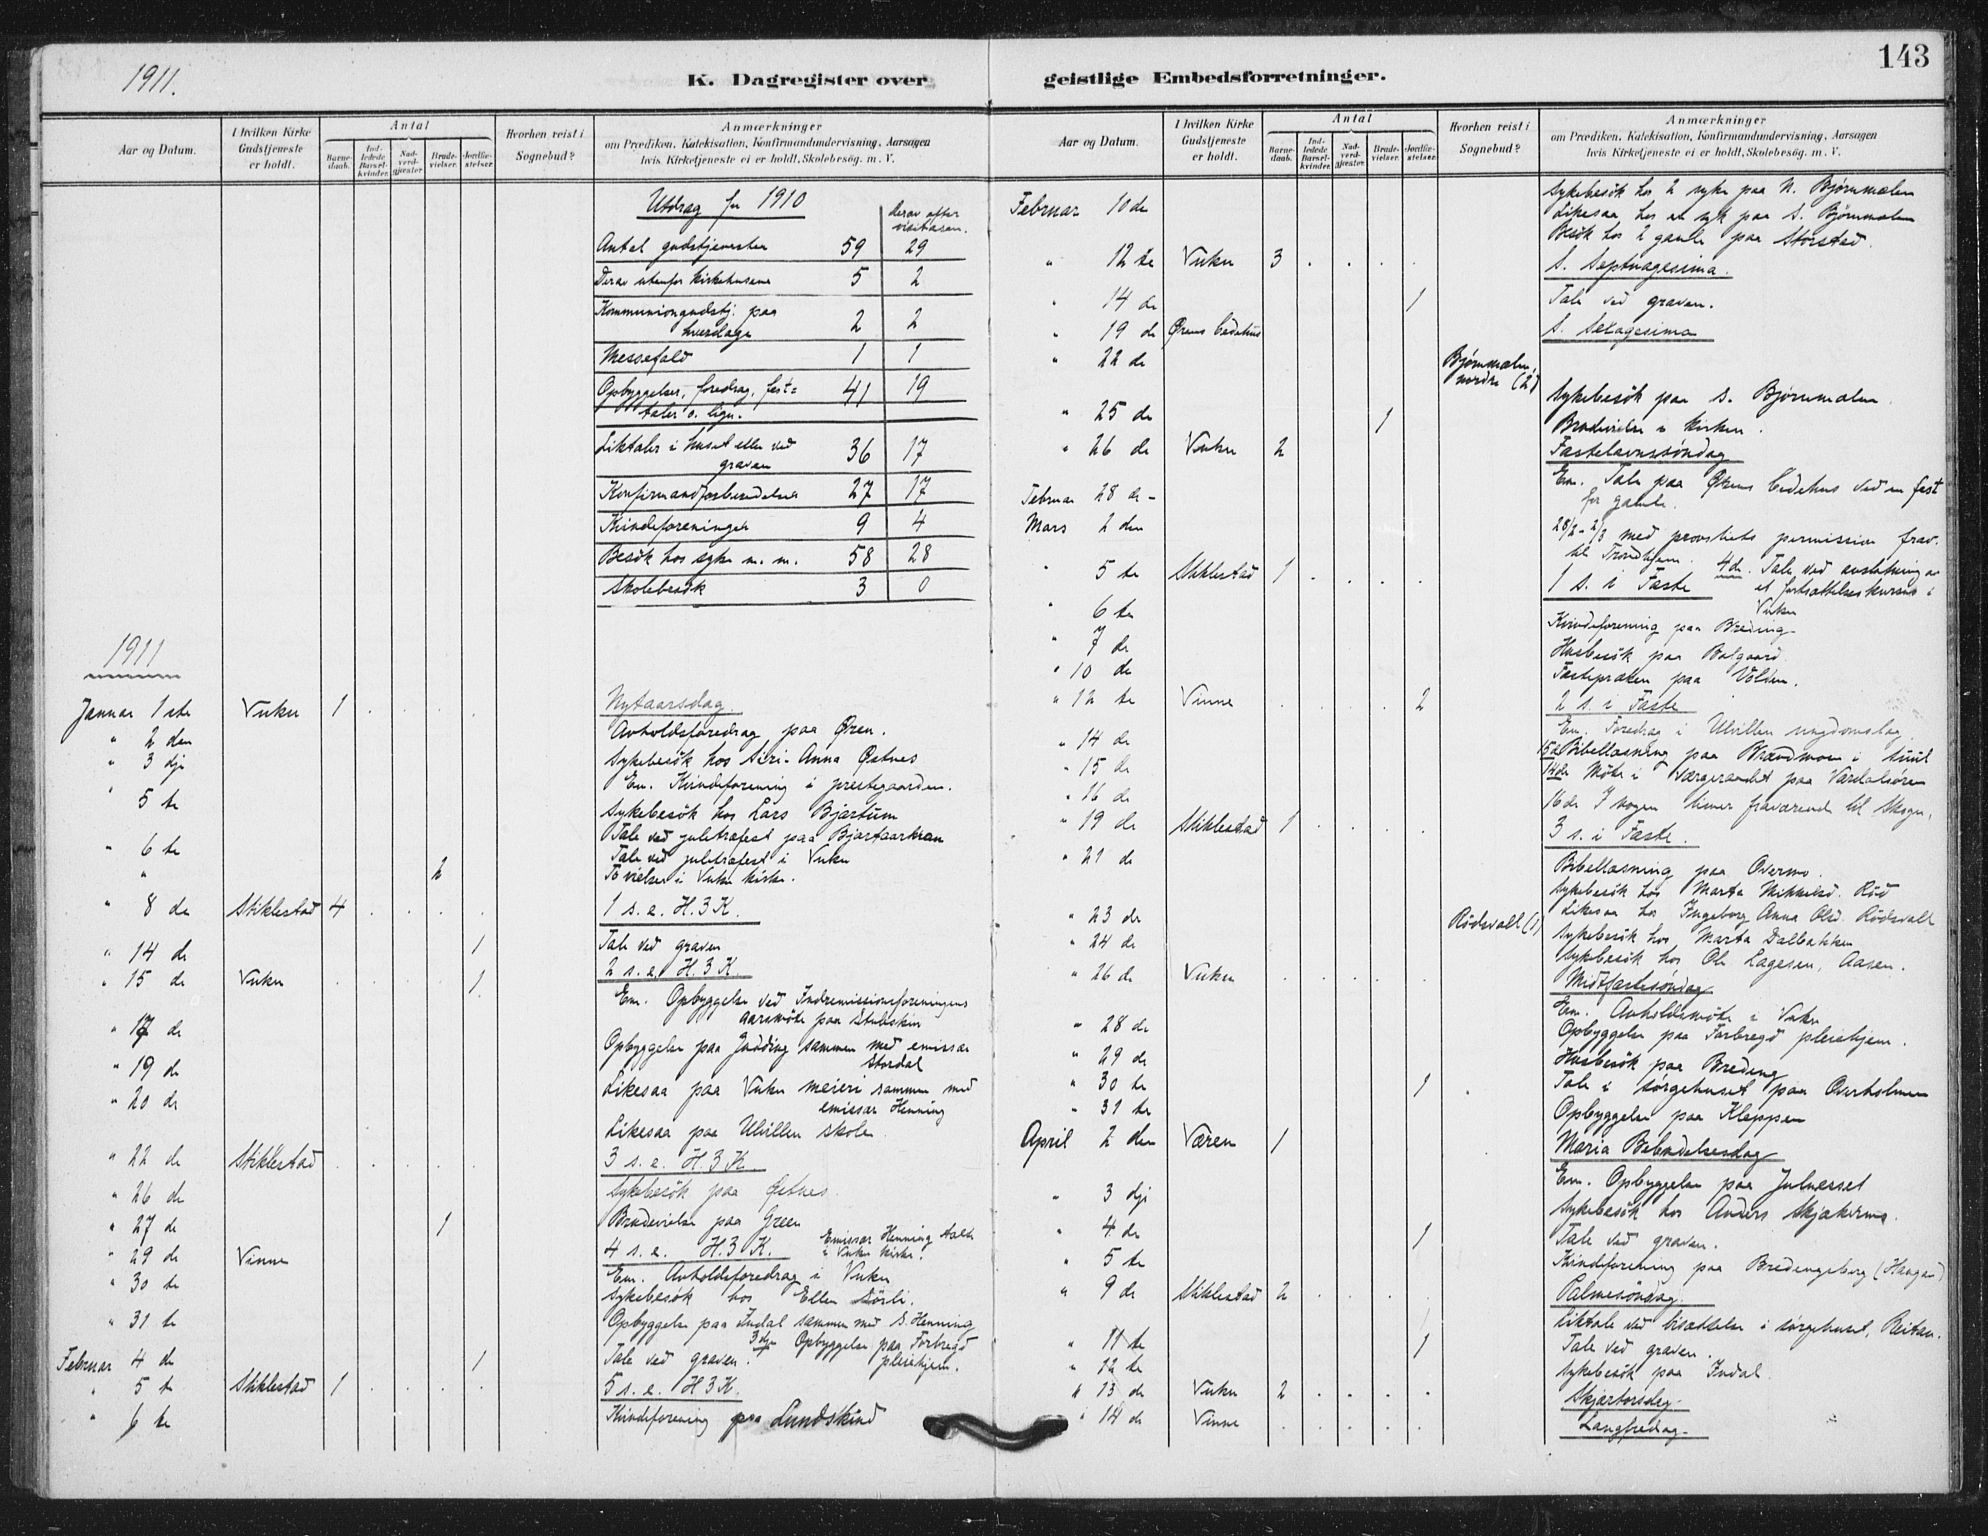 1911.
K. Dagregister over
Aar og Datum.
I hvilken Kirke Gudstjeneste er holdt.
Antal
Barne-daab.
Ind-ledede Barsel-kvinder.
Nad-verd-gjester.
Brude-vielser.
Jordfæ-stelser.
Hvorhen reist i Sognebud?
Anmærkninger
om Prædiken, Katekisation, Konfirmandundervisning, Aarsagen
hvis Kirketjeneste ei er holdt, Skolebesøg. m. V.
Utdrag for 1910
derav efter visitasen.
Antal gudstjenester 59 29
Derav utenfor kirkehusene 5 2
Kommuniongudstj. paa
hverdage 2 2
Messefald 1 1
Opbyggelser, foredrag, fest=
taler o. lign. 41 19
Liktaler i huset eller ved
graven 36 17
Konfirmandforberedelser 27 17
Kvindeforeninger 9 4
Besøk hos syke m. m. 58 28
Skolebesøk 3 0
1911
Januar 1ste Vuku 1 Nytaarsdag
" 2 den Avholdsforedrag paa Øren.
" 3 dje Sykebesøk hos Siri-Anna Østnes
Em. Kvindeforening i prestegaarden.
" 5 te Sykebesøk hos Lars Bjartum
Tale ved juletræfest paa
" 6 te Tale ved juletræfest i Vuku
" 2 To vielser i Vuku kirke.
" 8 de Stiklestad 4 1 s. e. H. 3 K.
" 14 de 1 Tale ved graven
" 15 de Vuku 1 2 s. e. H. 3 K.
Em. Opbyggelse ved Indremissionsforeningens
aarsmøte paa Stubskin
" 17 de Opbyggelse paa Judding sammen med emissær
Stordal
" 19 de Likesaa paa Vuku meieri sammen med
emissær Henning
" 20 de Likesaa paa Ulvillen skole.
" 22 de Stiklestad 3 s. e. H. 3 K.
" 26 de Sykebesøk paa Østnes.
" 27 de 1 Brudevielse paa Green
" 29 de Vinne 4 s. e. H. 3 K. Emissær Henning talte i Vuku kirke.
Em. Avholdsforedrag i Vuku
" 30 te Sykebesøk hos Ellen Sørli.
" 31 te Opbyggelse paa Indal sammen med S. Henning
Februar 4 de 1 Tale ved graven. 3dje Opbyggelse paa Forbregd pleiehjem.
" 5 te Stiklestad 1 5 s. e. H 3 K.
" 6 te Kvindeforening paa Lundskind
143
geistlige Embedsforretninger.
Aar og Datum.
I hvilken Kirke Gudstjeneste er holdt.
Antal
Barne-daab.
Ind-ledede Barsel-kvinder.
Nad-verd-gjester.
Brude-vielser.
Jordfæ-stelser.
Hvorhen reist i Sognebud?
Anmærkninger
om Prædiken, Katekisation, Konfirmandundervisning, Aarsagen
hvis Kirketjeneste ei er holdt, Skolebesøg. m. V.
Februar 10 de Sykebesøk hos 2 syke paa N. Bjørnmælen
Likesaa hos en syk paa S. Bjørnmælen
Besøk hos 2 gamle paa Storstad.
" 12 te Vuku 3 S. Septuagesima.
" 14 de 1 Tale ved graven.
" 19 de Ørens bedehus S. Sexagesima
" 22 de Bjørnmælen, nordre (2)
Sykebesøk paa S. Bjørnmælen
" 25 de 1 Brudevielse i kirken.
" 26 de Vuku 2 Fastelavnssøndag
Em. Tale paa Ørens bedehus ved en fest
for gamle.
Februar 28 de -
Mars 2 den 28/2 - 2/3 med provstiets permission frav.
til Trondhjem. 4de. Tale ved avslutning av
" 5 te Stiklestad 1 1 s. i Faste et fortsættelseskursus i
Vuku
" 6 te Kvindeforening paa Breding
" 7 de Husbesøk paa Balgaard
" 10 de Fastepræken paa Volden.
" 12 te Vinne 2 2 s. i Faste
Em. Foredrag i Ulvillen ungdomslag
" 14 de 15de Bibellæsning paa Brændmoen i Suul
" 15 de 14de Møte i værgeraadet paa Værdalsøren
" 16 de 16de I nogen timer fraværende til Skogn.
" 19 de Stiklestad 1 3 s. i Faste.
" 21 de Bibellæsning paa Overmo.
Sykebesøk hos Marta Mikkelsd. Rød
" 23 de Rødsvall (1) Likesaa hos Ingeborg Anna Olsd. Rødsvall
" 24 de Sykebesøk hos Marta Dalbakken
Sykebesøk hos Ole Lagesen, Aasen.
" 26 de Vuku Midtfastesøndag
Em. Avholdsmøte i Vuku
" 28 de Opbyggelse paa Forbregd pleiehjem.
" 29 de Husbesøk paa Breding
" 30 te 1 Tale i sørgehuset paa Overholmen
" 31 te Opbyggelse paa Kleppen
April 2 den Væren 1 Maria Bebudelsesdag
Em. Opbyggelse paa Julnesset
" 3 dje Sykebesøk hos Anders Skjækermo.
" 4 de 1 Tale ved graven.
" 5 te Kvindeforening paa Bredingsberg (Haugan)
" 9 de Stiklestad 2 Palmesøndag.
Liktale ved bisættelse i sørgehuset, Reitan.
" 11 te 1 Tale ved graven.
" 12 te Sykebesøk paa Indal
" 13 de Vuku 2 Skjærtorsdag.
" 14 de Vinne Langfredag.